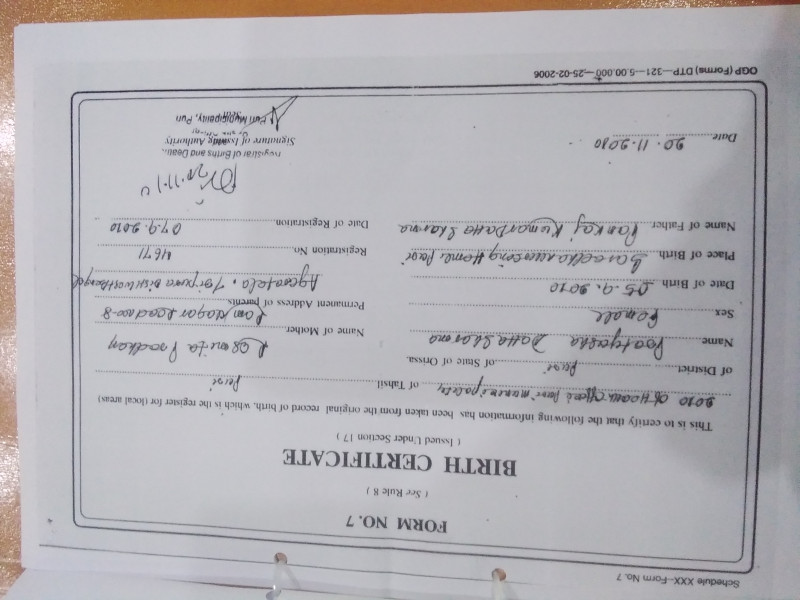 Schedule XXX—Form No. 7
FORM NO. 7
( See Rule 8 )
BIRTH CERTIFICATE
( Issued Under Section 17 )
This is to certify that the following information has been taken from the original record of birth, which is the register for (local areas)
2010 of Health Office Puri municipality of Tahsil Puri
of District Puri of State of Orissa.
Name Pratyasha Datta Sharma
Name of Mother Rasmita Pradhan
Sex Female
Permanent Address of parents Ram Nagar Road no-8
Agaratala, Tripura
Date of Birth 05.9.2010
Registration No. 4671
Place of Birth Nursing Home, Puri
Date of Registration 07.9.2010
Name of Father Pankaj Kumar Datta Sharma
Registrar of Births and Death
Signature of Issuing Authority
Puri Municipality, Puri
Date 20.11.2010
OGP (Forms) DTP—321—5,00,000—25-02-2006